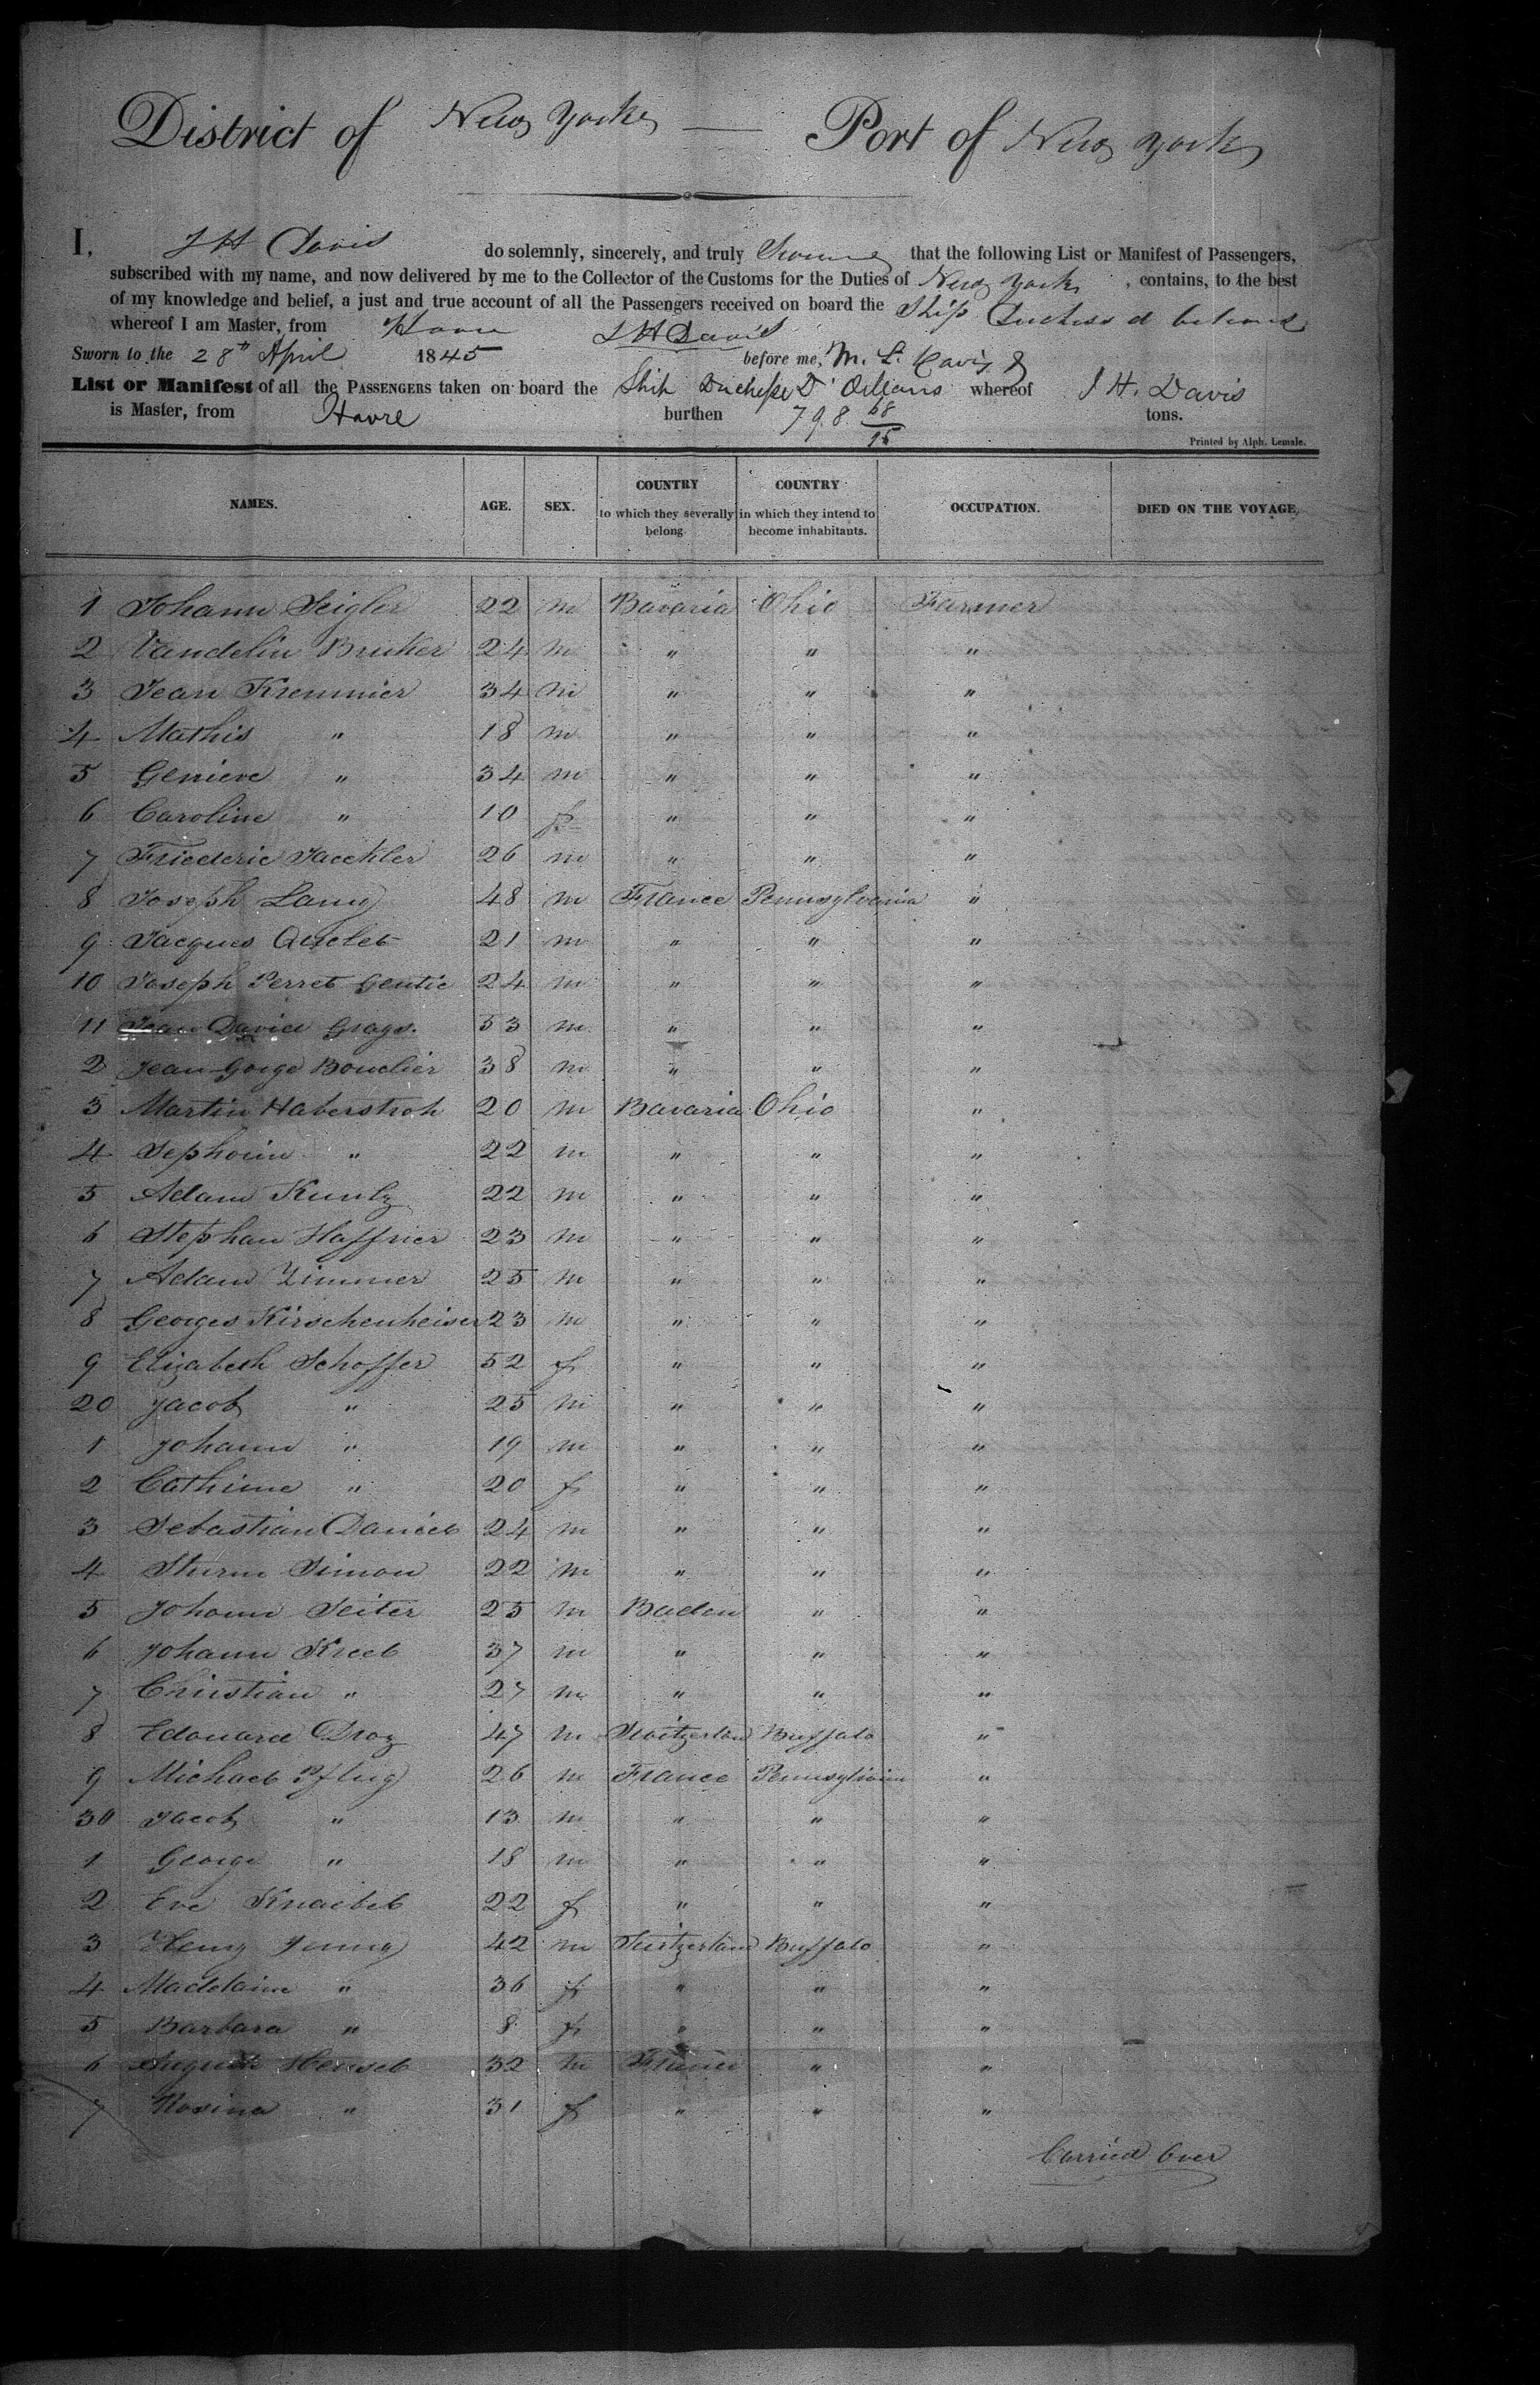 District of New York — Port of New York
I, J H Davis do solemnly, sincerely, and truly that the following List or Manifest of Passengers,
subscribed with my name, and now delivered by me to the Collector of the Customs for the Duties of New York , contains, to the best
of my knowledge and belief, a just and true account of all the Passengers received on board the Ship
whereof I am Master, from Havre J H Davis
Sworn to the 28th April 1845 before me, M. L. Davis
List or Manifest of all the PASSENGERS taken on board the Ship Duchesse D'Orleans whereof J H. Davis
is Master, from Havre burthen 798 68/95 tons.
Printed by Alph. Lemale.
NAMES. AGE. SEX. COUNTRY to which they severally belong. COUNTRY in which they intend to become inhabitants. OCCUPATION. DIED ON THE VOYAGE.
1 Johann Seigler 22 m Bavaria Ohio Farmer
2 Vandelin Bruker 24 m " " "
3 Jean Kremmier 34 m " " "
4 Mathis " 18 m " " "
5 Genieve " 34 m " " "
6 Caroline " 10 f " " "
7 Friederic Jaeckler 26 m " " "
8 Joseph Lamy 48 m France Pennsylvania "
9 Jacques 21 m " " "
10 Joseph Perret Gentie 24 m " " "
11 Jean David 53 m " " "
2 Jean Gorge Bouclier 38 m " " "
3 Martin Haberstroh 20 m Bavaria Ohio "
4 " 22 m " " "
5 Adam Kuntz 22 m " " "
6 Stephan Haffner 23 m " " "
7 Adam Zimmer 25 m " " "
8 Georges Kirschenheiser 23 m " " "
9 Elizabeth Schoffer 52 f " " "
20 Jacob " 25 m " " "
1 Johann " 19 m " " "
2 Cathrine " 20 f " " "
3 Sebastian Daniel 24 m " " "
4 Sturm Simon 22 m " " "
5 Johann Seiter 25 m Baden " "
6 Johann Kreel 37 m " " "
7 Christian " 27 m " " "
8 Edouard Droz 47 m Switzerland Buffalo "
9 Michael Pflug 26 m France Pennsylvania "
30 Jacob " 13 m " " "
1 George " 18 m " " "
2 Eve Knaebel 22 f " " "
3 Henry 42 m Switzerland Buffalo "
4 Madelaine " 36 f " " "
5 Barbara " 8 f " " "
6 August Hensel 32 m France " "
7 Rosina " 31 f " " "
Carried Over